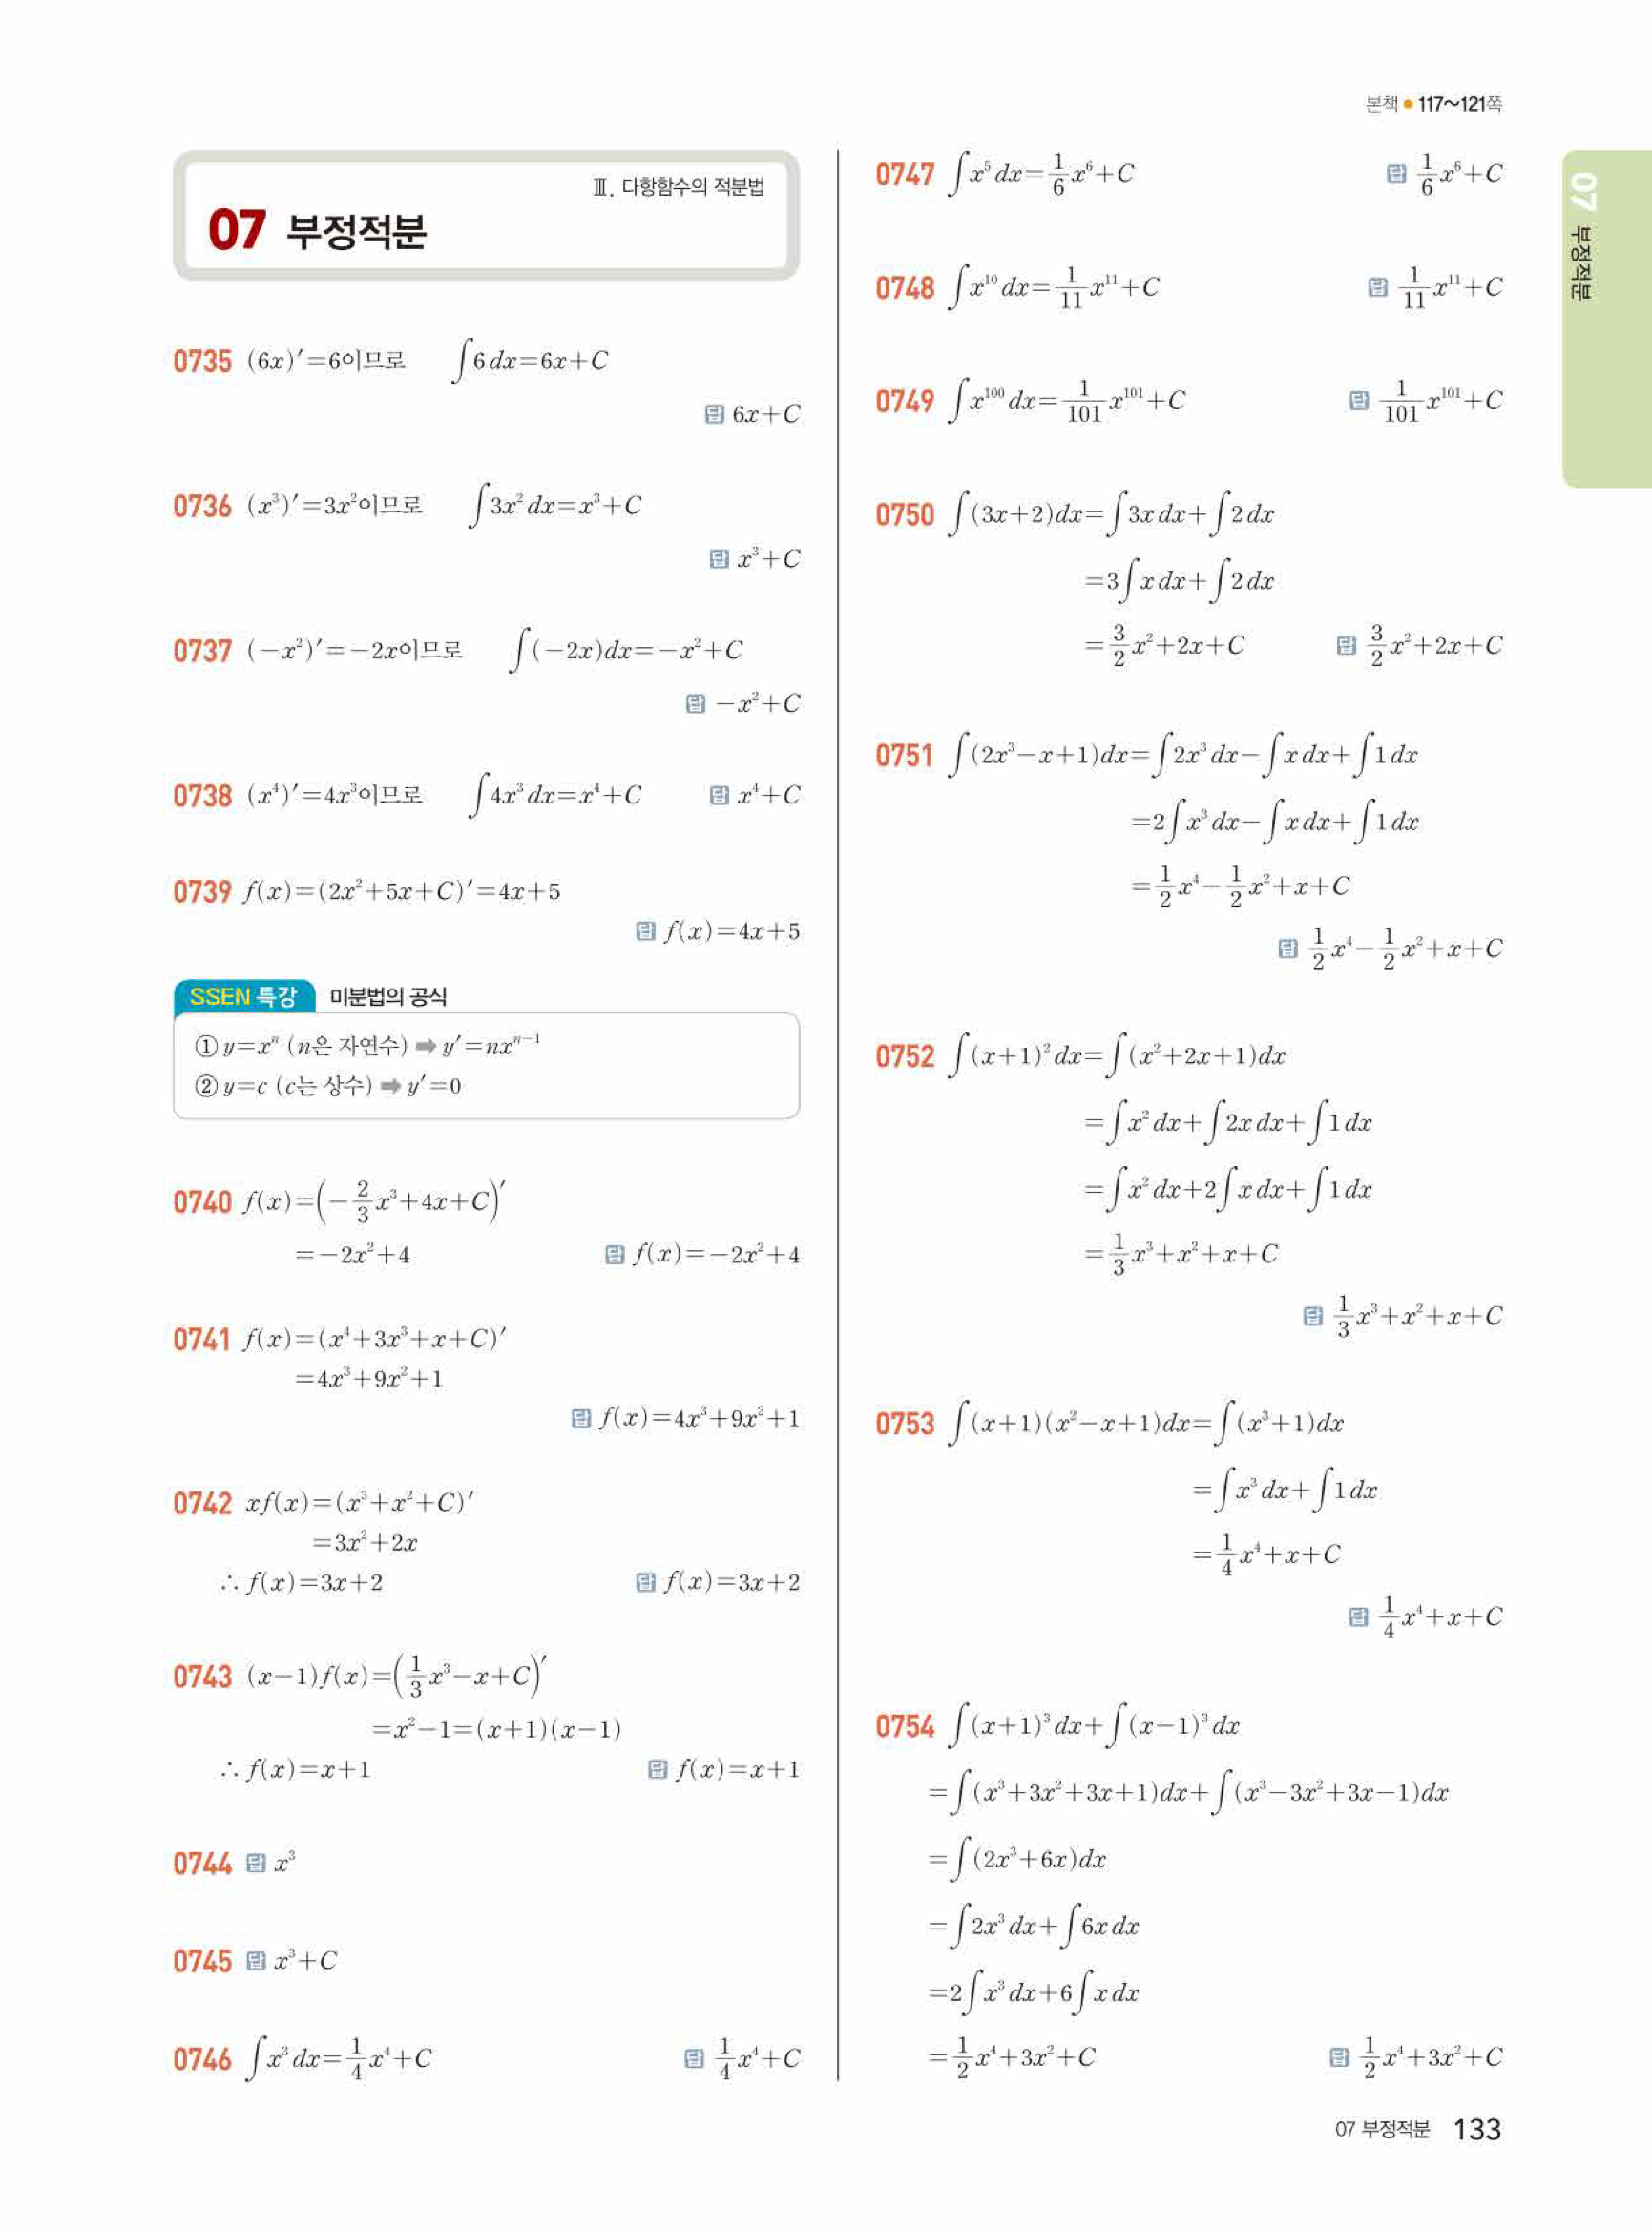 본책 • 117~121쪽
Ⅲ. 다항함수의 적분법
07 부정적분
0735 (6x)′=6이므로 ∫6dx=6x+C
답 6x+C
0736 (x³)′=3x²이므로 ∫3x²dx=x³+C
답 x³+C
0737 (-x²)′=-2x이므로 ∫(-2x)dx=-x²+C
답 -x²+C
0738 (x⁴)′=4x³이므로 ∫4x³dx=x⁴+C 답 x⁴+C
0739 f(x)=(2x²+5x+C)′=4x+5
답 f(x)=4x+5
SSEN 특강 미분법의 공식
① y=xⁿ (n은 자연수) ➡ y′=nxⁿ⁻¹
② y=c (c는 상수) ➡ y′=0
0740 f(x)=(-2/3x³+4x+C)′
=-2x²+4 답 f(x)=-2x²+4
0741 f(x)=(x⁴+3x³+x+C)′
=4x³+9x²+1
답 f(x)=4x³+9x²+1
0742 xf(x)=(x³+x²+C)′
=3x²+2x
∴ f(x)=3x+2 답 f(x)=3x+2
0743 (x-1)f(x)=(1/3x³-x+C)′
=x²-1=(x+1)(x-1)
∴ f(x)=x+1 답 f(x)=x+1
0744 답 x³
0745 답 x³+C
0746 ∫x³dx=1/4x⁴+C 답 1/4x⁴+C
0747 ∫x⁵dx=1/6x⁶+C 답 1/6x⁶+C
0748 ∫x¹⁰dx=1/11x¹¹+C 답 1/11x¹¹+C
0749 ∫x¹⁰⁰dx=1/101x¹⁰¹+C 답 1/101x¹⁰¹+C
0750 ∫(3x+2)dx=∫3xdx+∫2dx
=3∫xdx+∫2dx
=3/2x²+2x+C 답 3/2x²+2x+C
0751 ∫(2x³-x+1)dx=∫2x³dx-∫xdx+∫1dx
=2∫x³dx-∫xdx+∫1dx
=1/2x⁴-1/2x²+x+C
답 1/2x⁴-1/2x²+x+C
0752 ∫(x+1)²dx=∫(x²+2x+1)dx
=∫x²dx+∫2xdx+∫1dx
=∫x²dx+2∫xdx+∫1dx
=1/3x³+x²+x+C
답 1/3x³+x²+x+C
0753 ∫(x+1)(x²-x+1)dx=∫(x³+1)dx
=∫x³dx+∫1dx
=1/4x⁴+x+C
답 1/4x⁴+x+C
0754 ∫(x+1)³dx+∫(x-1)³dx
=∫(x³+3x²+3x+1)dx+∫(x³-3x²+3x-1)dx
=∫(2x³+6x)dx
=∫2x³dx+∫6xdx
=2∫x³dx+6∫xdx
=1/2x⁴+3x²+C 답 1/2x⁴+3x²+C
07 부정적분
07 부정적분 133